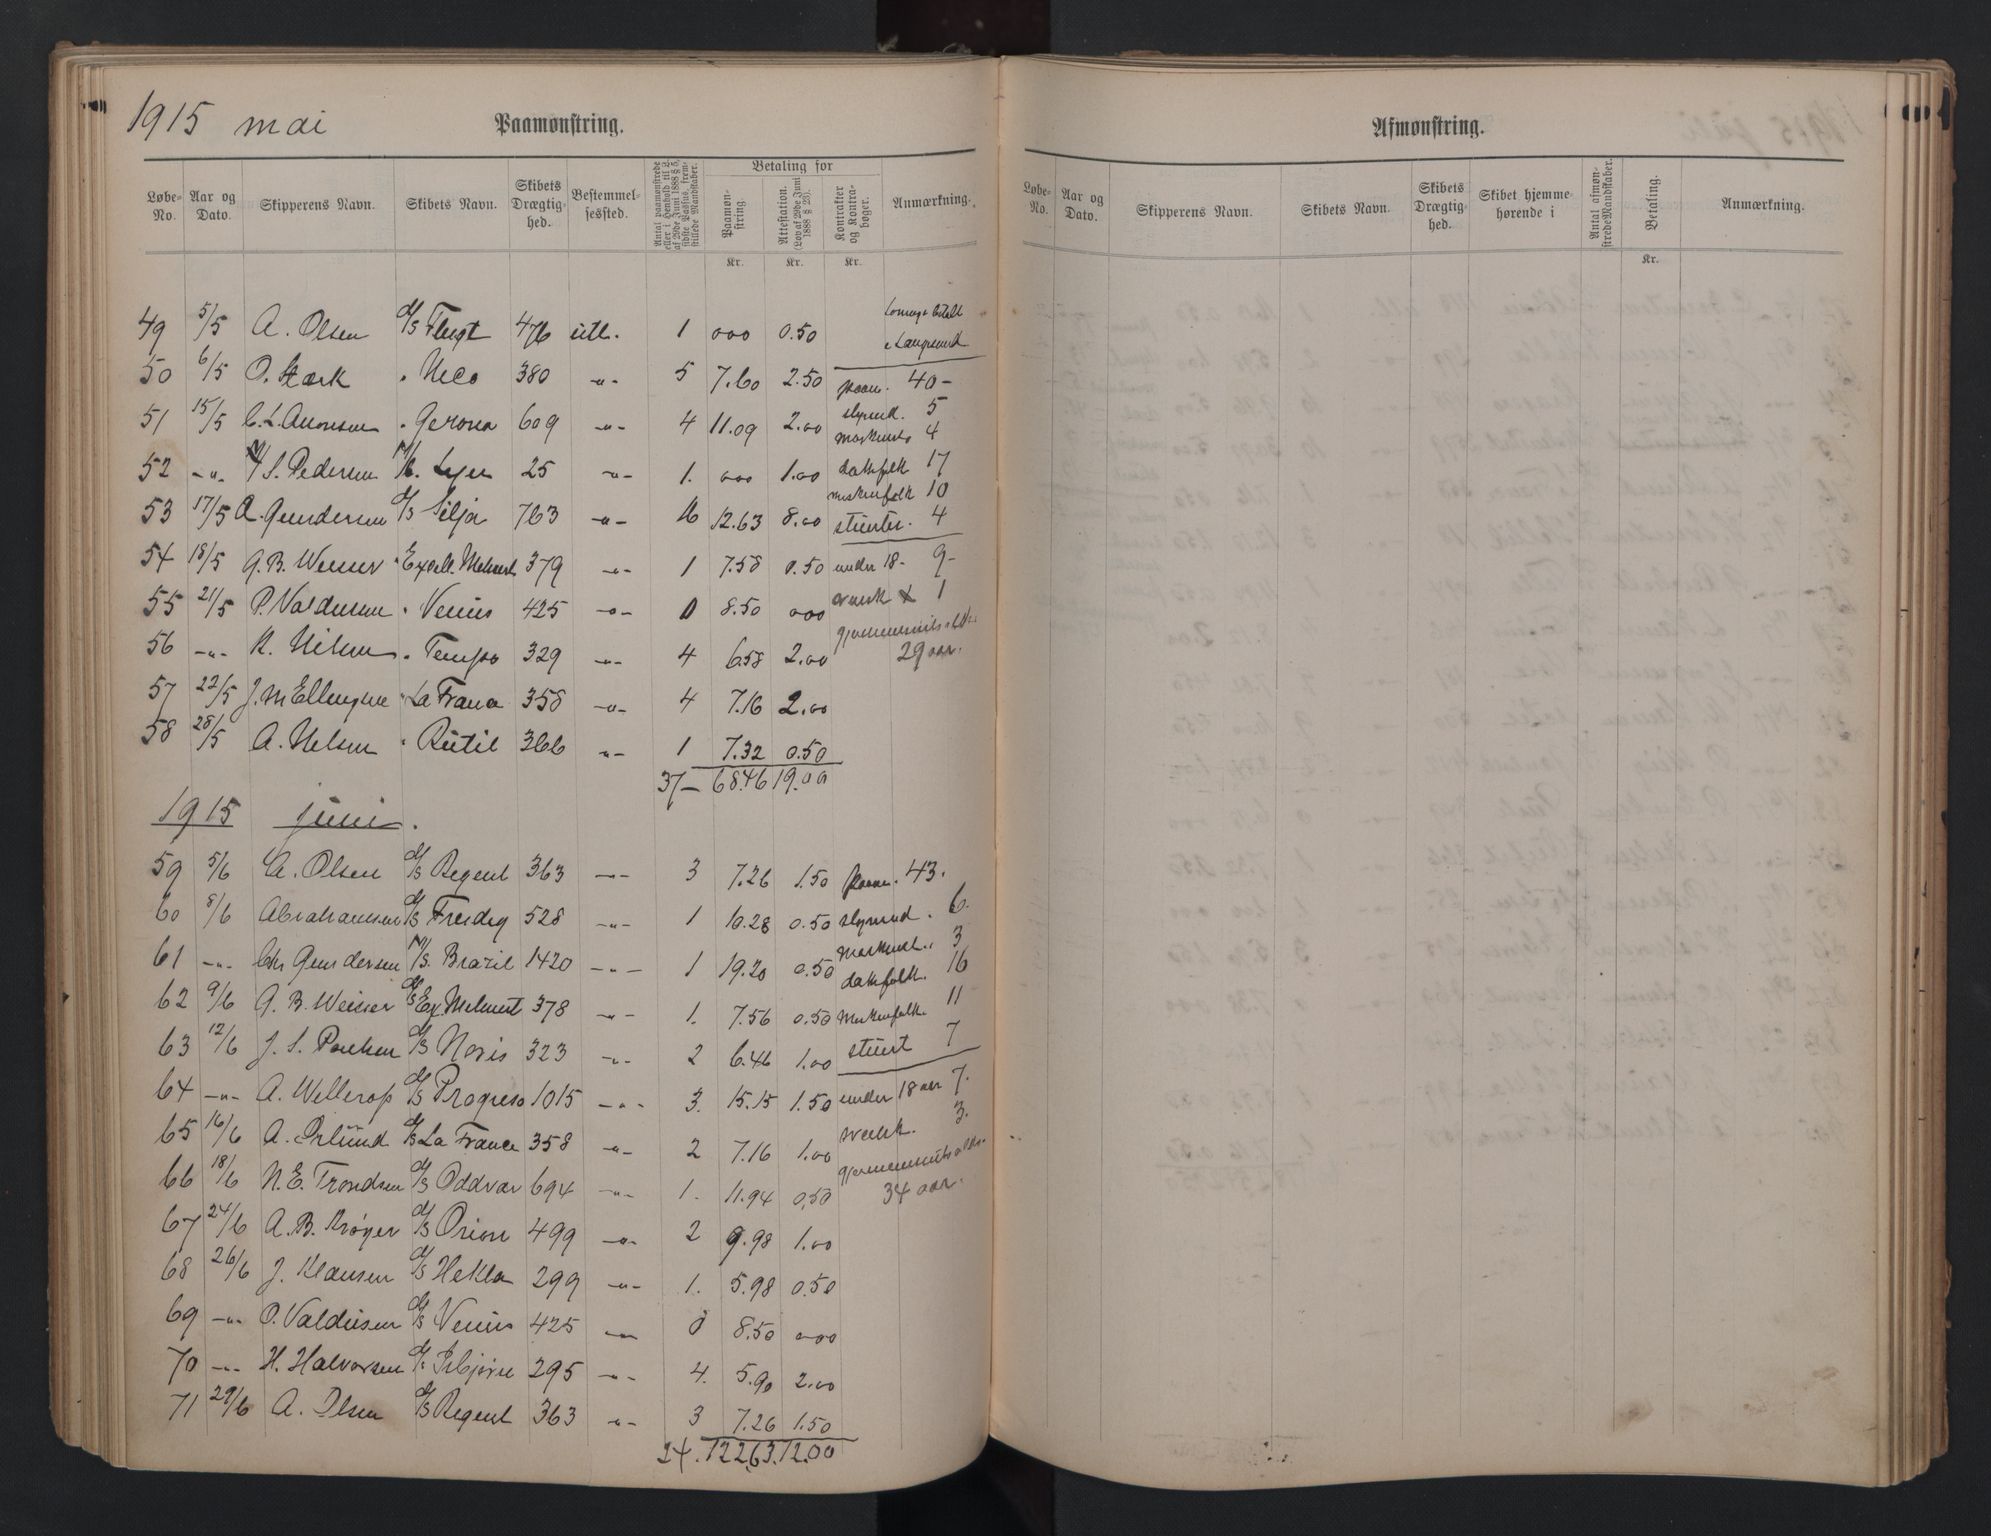 1915 mai
Paamønstring.
Løbe-No. Aar og Dato. Skipperens Navn. Skibets Navn. Skibets Drægtighed. Bestemmelsessted. Antal paamønstrede eller i Henhold til af 29de Juni 1888 § 5, sidste Passus, fremstillede Mandskaber. Betaling for Paamønstring. Attestation. (Lov af 29de Juni 1888 § 23). Kontrakter og Kontrabøger. Anmærkning.
Kr. Kr. Kr.
49 5/5 A. Olsen d/s Flugt 476 utl. 1 000 0.50
50 6/5 O. Stærk " Ueco 380 -"- 5 7.60 2.50 paam. 40-
51 15/5 C. L. Amonsen " Gerona 609 -"- 4 11.09 2.00 styrmd. 5
maskinst. 4
52 -"- S. Pedersen 25 -"- 1. 000 1.00 dæksfolk 17
maskinfolk 10
53 17/5 A. Gundersen d/s Silja 763 -"- 16 12.63 8.00 stuerter. 4
54 18/5 G. B. Weiser " Excell. Mehnert 379 -"- 1 7.58 0.50 under 18- 9-
55 21/5 P. Valdersen " Venus 425 -"- 0 8.50 000 svensk 1
56 -"- K. Nilsen " Tempo 329 -"- 4 6.58 2.00 gjennemsnits alder
29 aar.
57 22/5 J. M. Ellingsen " La France 358 -"- 4 7.16 2.00
58 28/5 A. Nelsen " Rutil 366 -"- 1 7.32 0.50
37- 68.46 19.00
1915 juni.
59 5/6 A. Olsen d/s Regent 363 -"- 3 7.26 1.50 paam. 43.
60 8/6 Abrahamsen d/s Freidig 528 -"- 1 10.28 0.50 styrmd. 6.
61 -"- Chr Gundersen M/s. Brazil 1420 -"- 1 19.20 0.50 Maskinst. 3
dæksfolk. 16
62 9/6 G. B. Weiser d/s Ex Mehnert 378 -"- 1. 7.56 0.50 Maskinfolk. 11
63 12/6 J. S. Poulsen d/s Noris 323 -"- 2 6.46 1.00 stuert 7
64 -"- A. Wellerop d/s Progreso 1015 -"- 3. 15.15 1.50 under 18 aar 7.
65 16/6 A. Ørlund d/s La France 358 -"- 2 7.16 1.00 svensk. 3.
66 18/6 N. E. Trondsen d/s Oddvar 694 -"- 1. 11.94 0.50 gjennemsnits alder.
34 aar.
67 24/6 A. B. Krøger d/s Orion 499 -"- 2 9.98 1.00
68 26/6 J. Klausen d/s Hekla 299 -"- 1. 5.98 0.50
69 -"- P. Valdersen d/s Venus 425 -"- 0 8.50 000
70 -"- H. Halvorsen d/s Isbjørn 295 -"- 4. 5.90 2.00
71 29/6 A. Olsen d/s Regent 363 -"- 3 7.26 1.50
24. 122.63. 12.00
Afmønstring.
Løbe-No. Aar og Dato. Skipperens Navn. Skibets Navn. Skibets Drægtighed. Skibet hjemmehørende i Antal afmønstrede Mandskaber. Betaling. Anmærkning.
Kr.